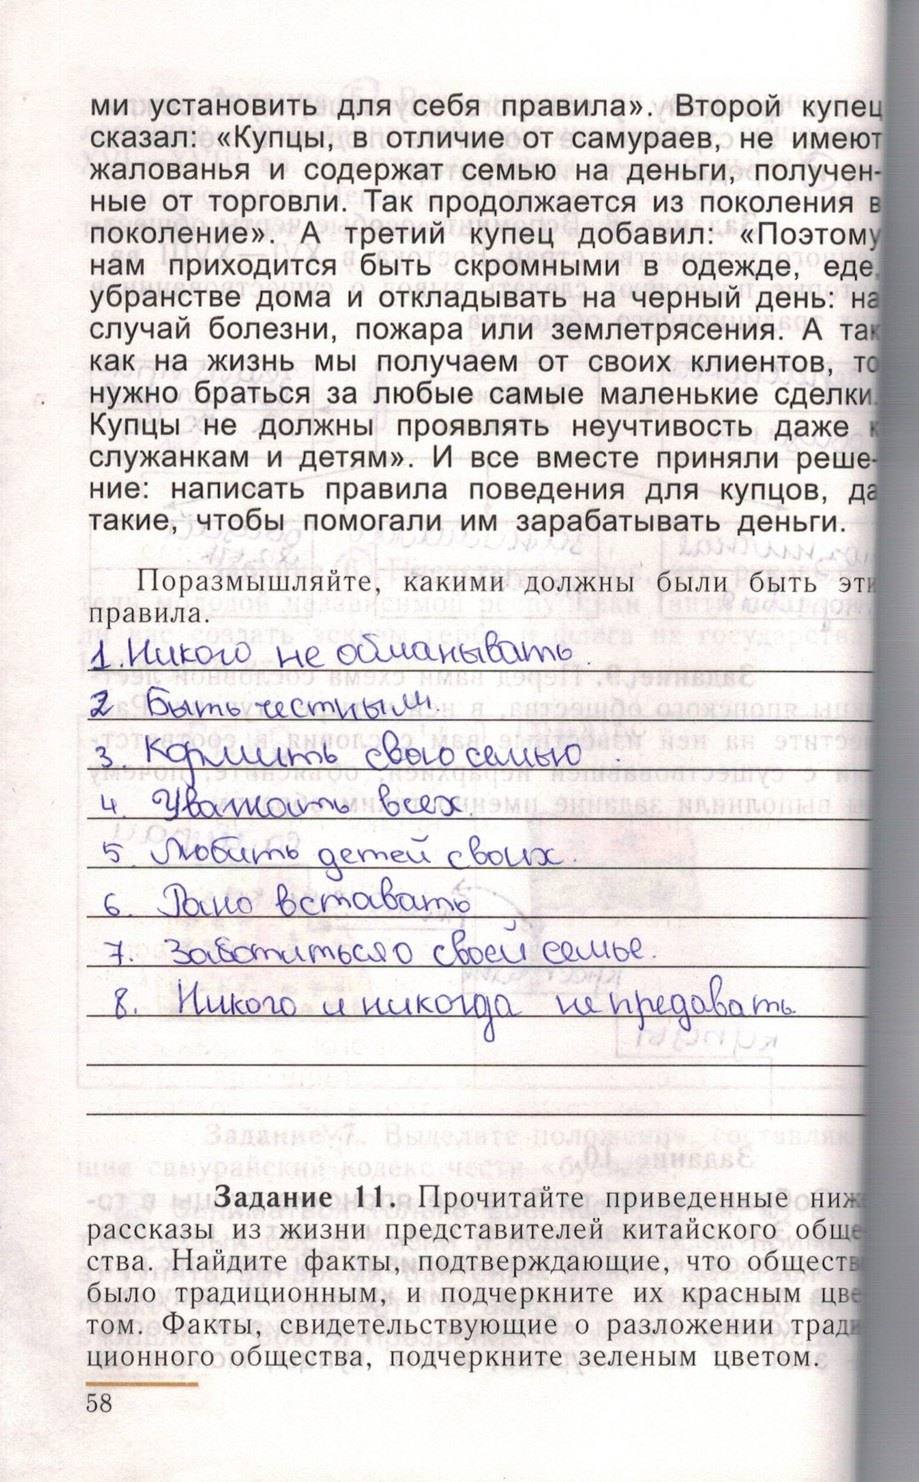 ми установить для себя правила». Второй купец
сказал: «Купцы, в отличие от самураев, не имеют
жалованья и содержат семью на деньги, получен-
ные от торговли. Так продолжается из поколения в
поколение». А третий купец добавил: «Поэтому
нам приходится быть скромными в одежде, еде,
убранстве дома и откладывать на черный день: на
случай болезни, пожара или землетрясения. А так
как на жизнь мы получаем от своих клиентов, то
нужно браться за любые самые маленькие сделки.
Купцы не должны проявлять неучтивость даже к
служанкам и детям». И все вместе приняли реше-
ние: написать правила поведения для купцов, да
такие, чтобы помогали им зарабатывать деньги.
Поразмышляйте, какими должны были быть эти
правила.
1. Никого не обманывать.
2 Быть честным.
3. Кормить свою семью.
4. Уважать всех.
5. Любить детей своих.
6. Рано вставать
7. Заботиться о своей семье.
8. Никого и никогда не предавать.
Задание 11. Прочитайте приведенные ниже
рассказы из жизни представителей китайского обще-
ства. Найдите факты, подтверждающие, что общество
было традиционным, и подчеркните их красным цве-
том. Факты, свидетельствующие о разложении тради-
ционного общества, подчеркните зеленым цветом.
58